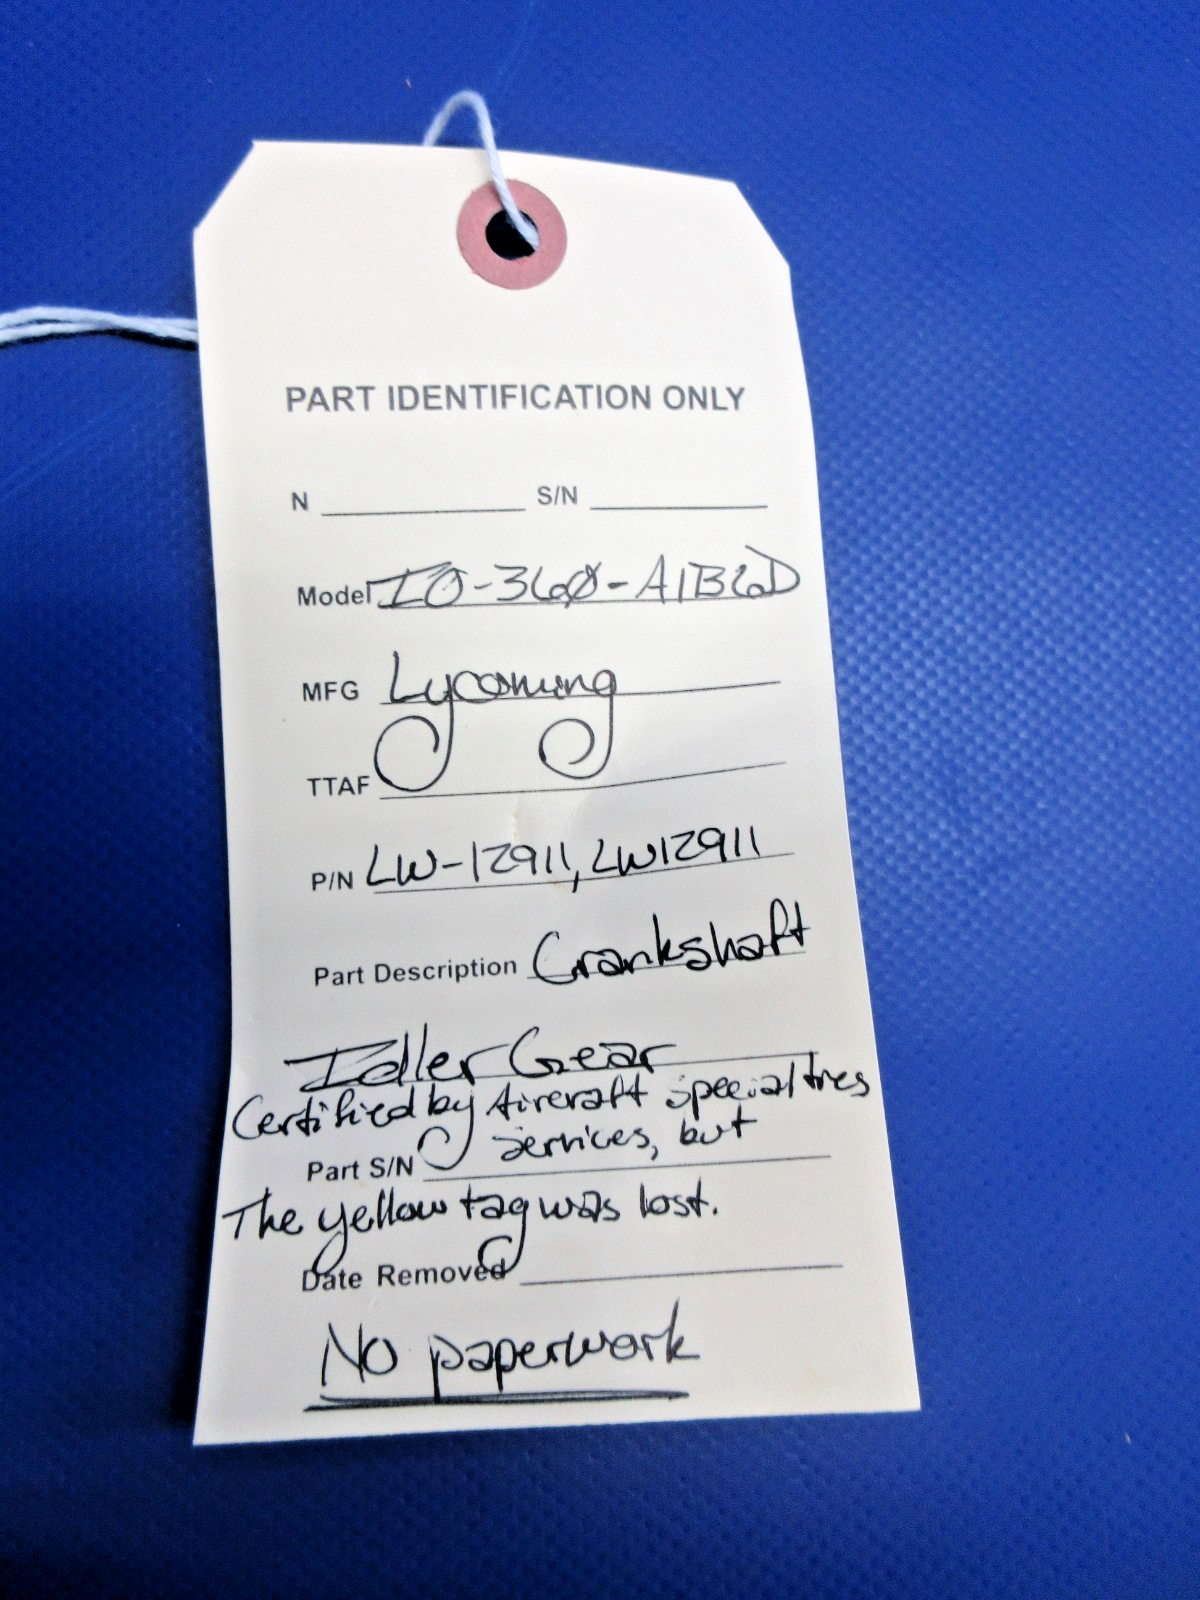 PART IDENTIFICATION ONLY
N S/N
Model IO-360-A1B6D
MFG Lycoming
TTAF
P/N LW-12911, LW12911
Part Description Crankshaft
Idler Gear
Certified by Aircraft specialties
services, but
Part S/N
The yellow tag was lost.
Date Removed
No paperwork